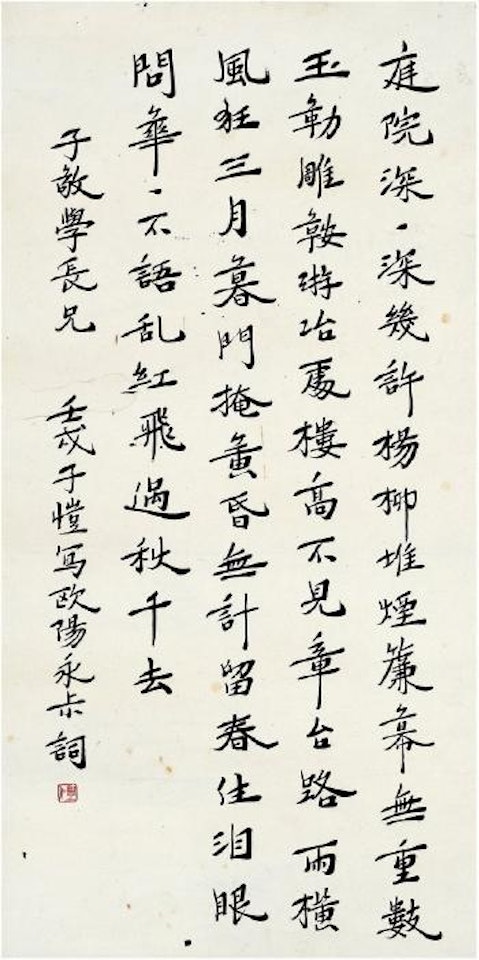 庭院深、深幾許楊柳堆煙簾幕無重數
玉勒雕鞍游冶處樓高不見章台路雨橫
風狂三月暮門掩黃昏無計留春住泪眼
問華、不語乱紅飛過秋千去
子敬學長兄 壬戌子愷写欧陽永尗詞